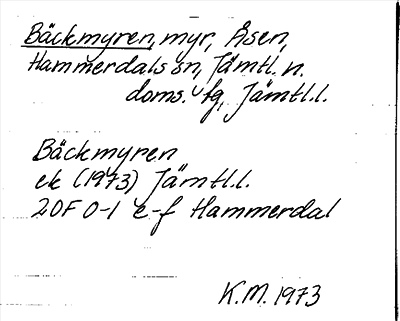 Bäckmyren, myr, Åsen,
Hammerdals sn, Jämtl. n.
doms. fg, Jämtl.l.
Bäckmyren
ek (1973) Jämtl.l.
20F 0-1 e-f Hammerdal
K.M. 1973